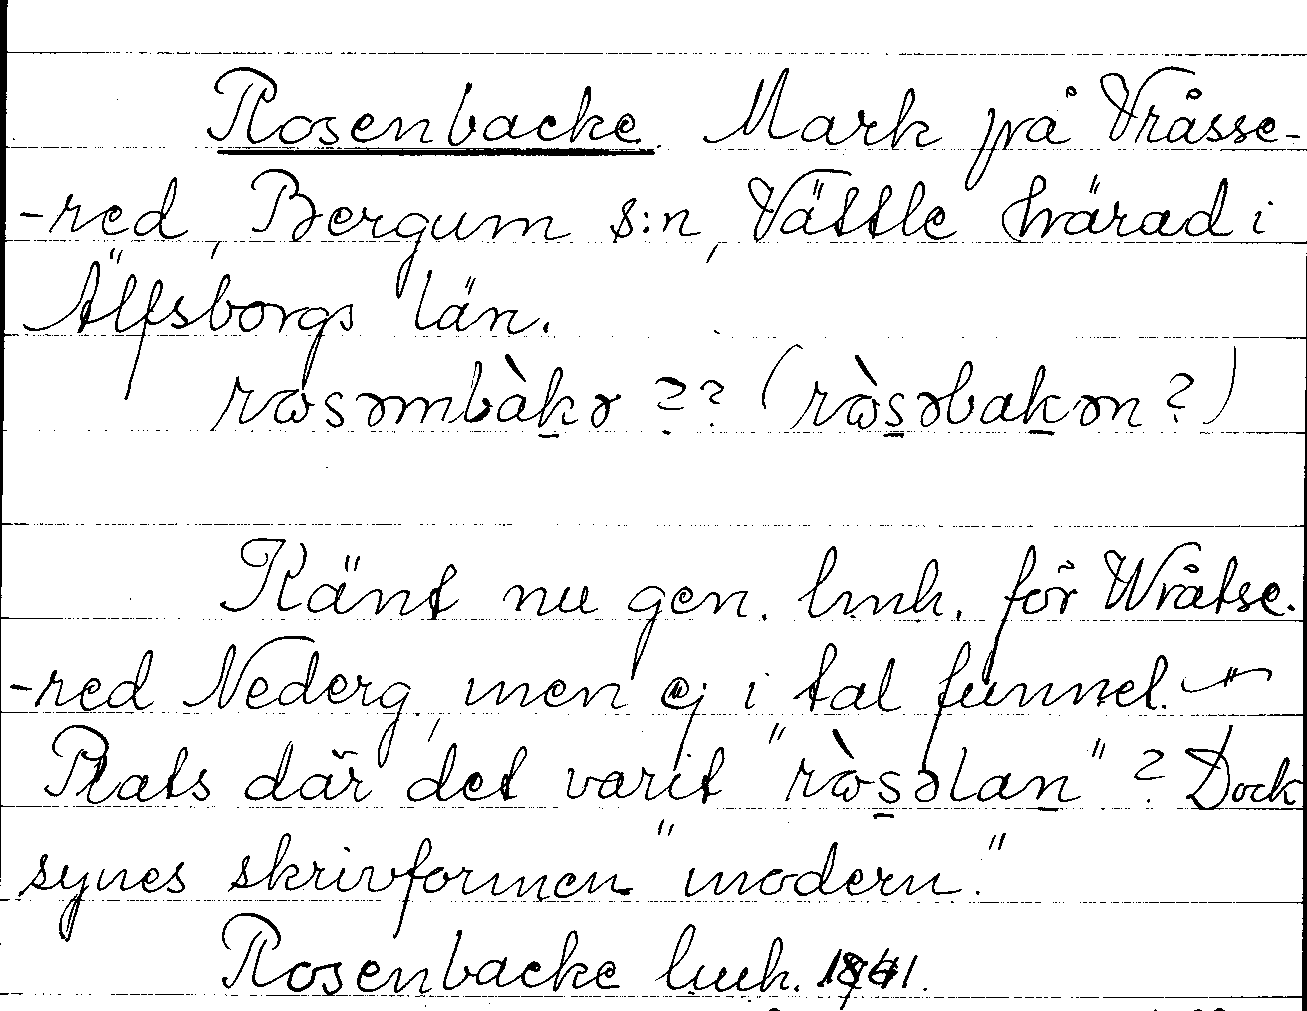 Rosenbacke. Mark på Vråsse-
-red, Bergum s:n, Vättle härad i
Älfsborgs län.
rωsəmbàkə ?? (rὼsəbakən ?)
Känt nu gen. lmk. för Wråtse-
-red Nederg., men ej i tal funnet. –"–
Plats där det varit "rὼsəlan" ? Dock
synes skrivformen "modern."
Rosenbacke lmk.